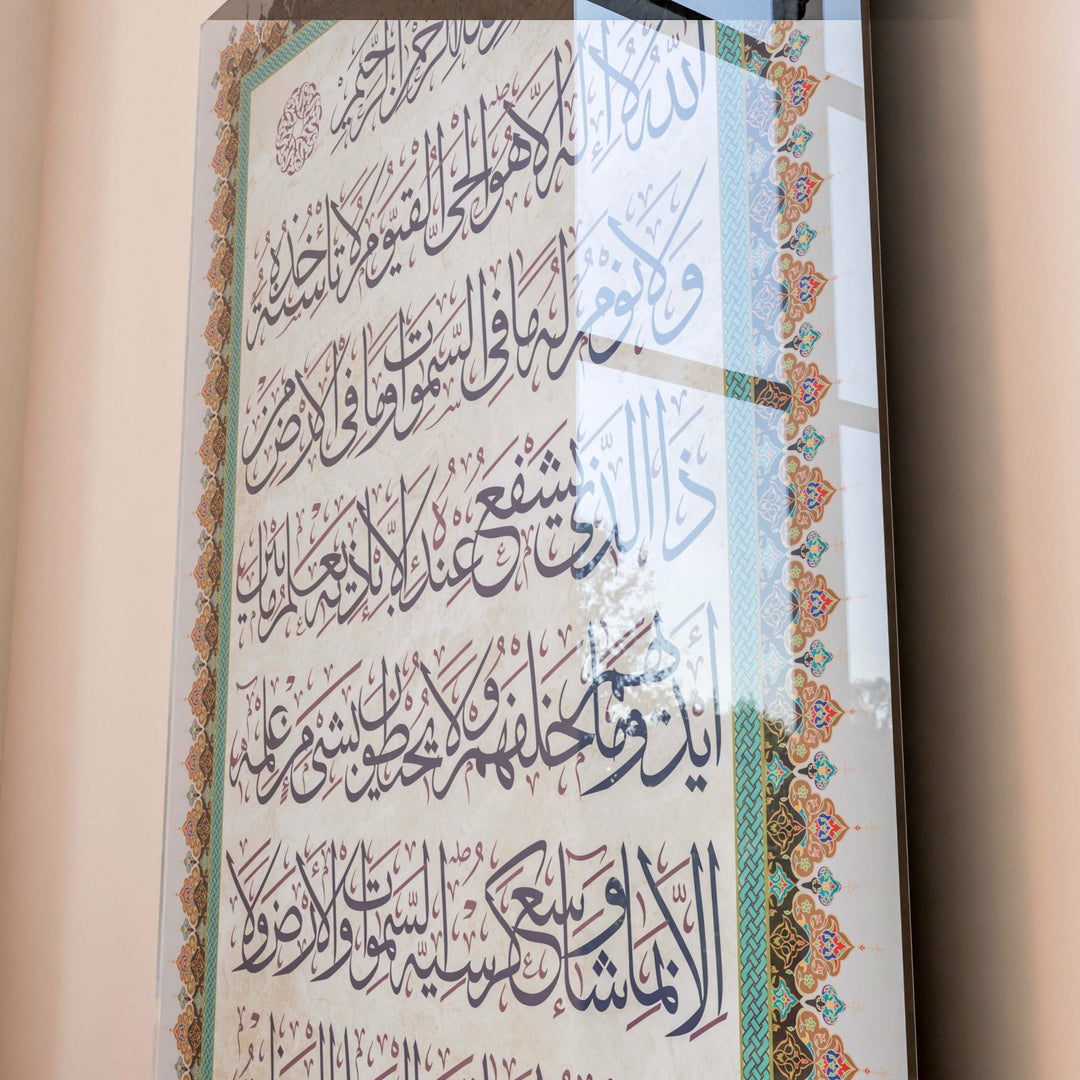 الرحمن الرحيم
الله لا إله إلا هو الحي القيوم لا تأخذه سنة
ولا نوم له ما في السموات وما في الأرض من
ذا الذي يشفع عنده إلا بإذنه يعلم ما بين
أيديهم وما خلفهم ولا يحيطون بشيء من علمه
إلا بما شاء وسع كرسيه السموات والأرض ولا